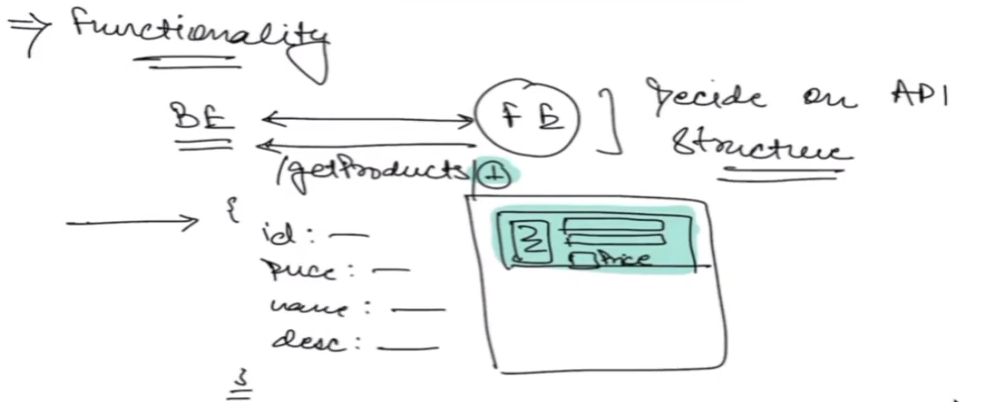 ⇒ Functionality
BE ↔ FE ] Decide on API
Structure
/getProducts/1
{
id: —
price: —
name: —
desc: —
}
Price